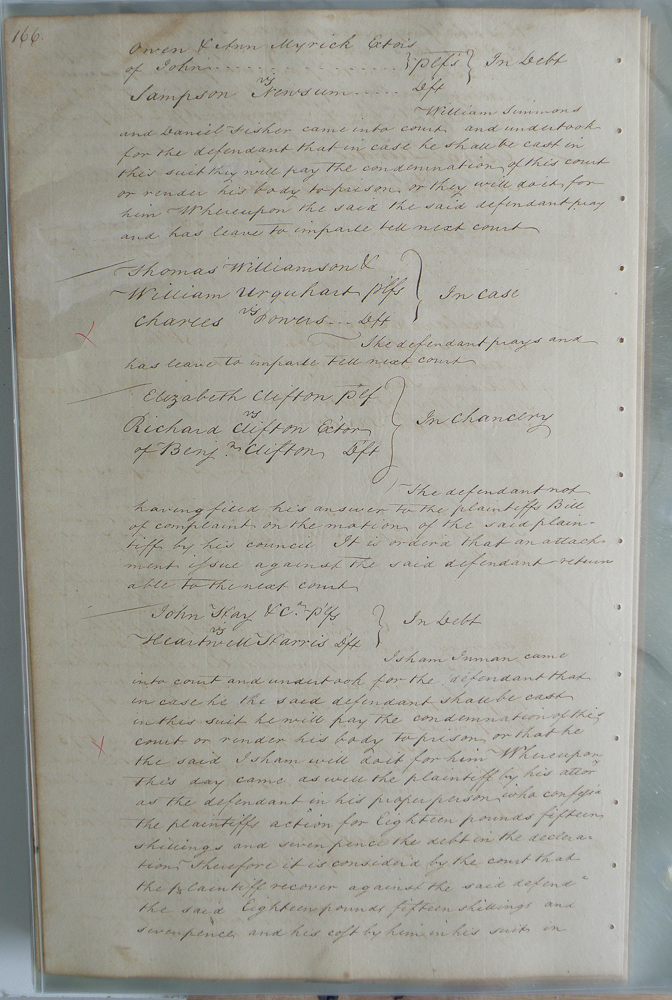 166.
Owen & Ann Myrick Extors
of John . . . . . . . . . . . . . . . . . . plfs } In Debt
vs
Sampson Newsum . . . . . Dft
William Simmons
and Daniel Fisher came into court and undertook
for the defendant that in case he shall be cast in
this suit they will pay the condemnation of this court
or render his body to prison or they will do it for
him Whereupon the said the said defendant pray
and has leave to imparle till next court
Thomas Williamson &
William Urquhart plfs } In Case
vs
Charles Powers . . . Dft
The defendant prays and
has leave to imparle till next court
Elizabeth Clifton plf
vs
Richard Clifton Extor } In Chancery
of Benjn Clifton Dft
The defendant not
having filed his answer to the plaintiffs Bill
of complaint on the motion of the said plain-
tiff by his council It is orderd that an attach-
ment issue against the said defendant return
able to the next court
John Hay & Co plfs
vs } In Debt
Heartwell Harris Dft
Isham Inman came
into court and undertook for the defendant that
in case he the said defendant shall be cast
in this suit he will pay the condemnation of this
court or render his body to prison or that he
the said Isham will do it for him Whereupon
this day came as well the plaintiff by his attor
as the defendant in his proper person who confess
the plaintiffs action for Eighteen pounds fifteen
shillings and seven pence the debt in the declara-
tion Therefore it is considerd by the court that
the plaintiff recover against the said defendt
the said Eighteen pounds fifteen shillings and
sevenpence and his cost by him in his suit in